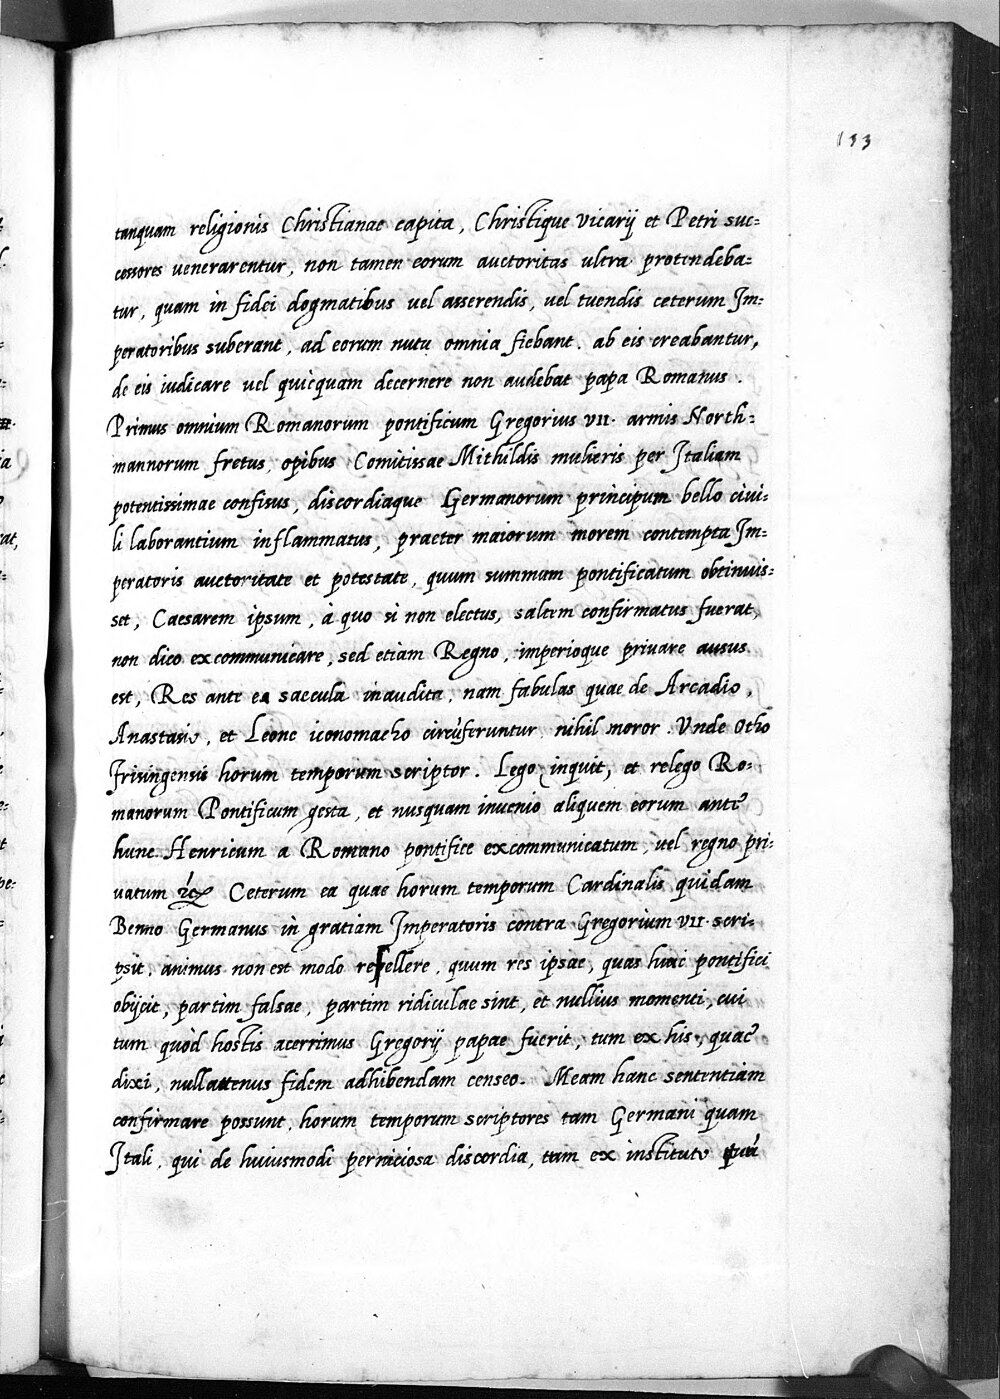 133
tanquam religionis Christianae capita, Christique vicarij et Petri suc=
cessores venerarentur, non tamen eorum auctoritas ultra protendeba=
tur, quam in fidei dogmatibus vel asserendis, vel tuendis ceterum Im=
peratoribus suberant, ad eorum nutu omnia fiebant. ab eis creabantur,
de eis iudicare vel quicquam decernere non audebat papa Romanus.
Primus omnium Romanorum pontificum Gregorius VII. armis North=
mannorum fretus, opibus Comitissae Mithildis mulieris per Italiam
potentissimae confisus, discordiaque Germanorum principum bello civi=
li laborantium inflammatus, praeter maiorum morem contempta Im=
peratoris auctoritate et potestate, quum summum pontificatum obtinuis=
set, Caesarem ipsum, à quo si non electus, saltem confirmatus fuerat,
non dico excommunicare, sed etiam Regno, imperioque privare ausus
est, Res ante ea saecula inaudita, nam fabulas quae de Arcadio,
Anastasio, et Leone iconomacho circũferuntur nihil moror. Unde Otho
Frisingensis horum temporum scriptor. Lego, inquit, et relego Ro=
manorum Pontificum gesta, et nusquam invenio aliquem eorum ante
hunc Henricum a Romano pontifice excommunicatum, vel regno pri=
vatum &c Ceterum ea quae horum temporum Cardinalis quidam
Benno Germanus in gratiam Imperatoris contra Gregorium VII. scri=
psit, animus non est modo repellere, quum res ipsae, quas huic pontifici
obijcit, partim falsae, partim ridiculae sint, et nullius momenti, cui
tum quòd hostis acerrimus Gregorij papae fuerit, tum ex his, quae
dixi, nullatenus fidem adhibendam censeo. Meam hanc sententiam
confirmare possunt, horum temporum scriptores tam Germani quam
Itali, qui de huiusmodi perniciosa discordia, tam ex instituto quã